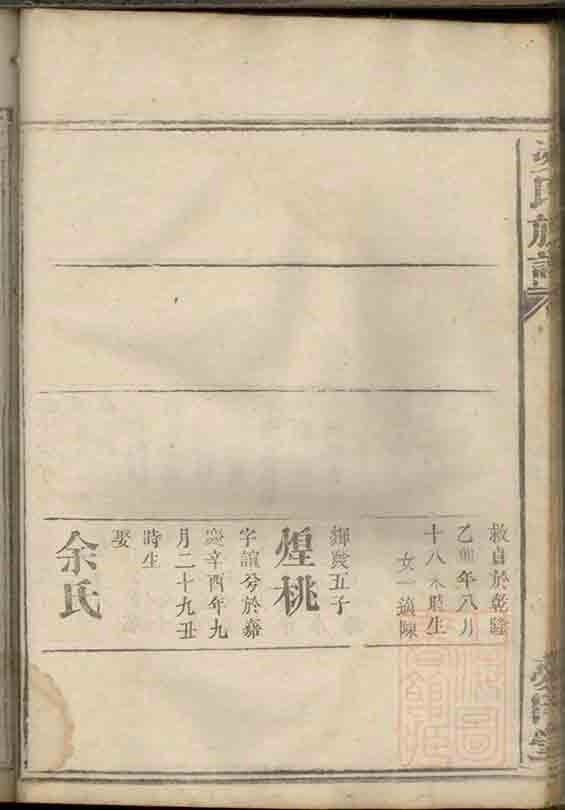 氏族譜
於乾隆
乙卯年八月
十八未時生
女一適陳
五子
煌桃
字誼兮於嘉
慶辛酉年九
月二十九丑
時生
娶
余氏